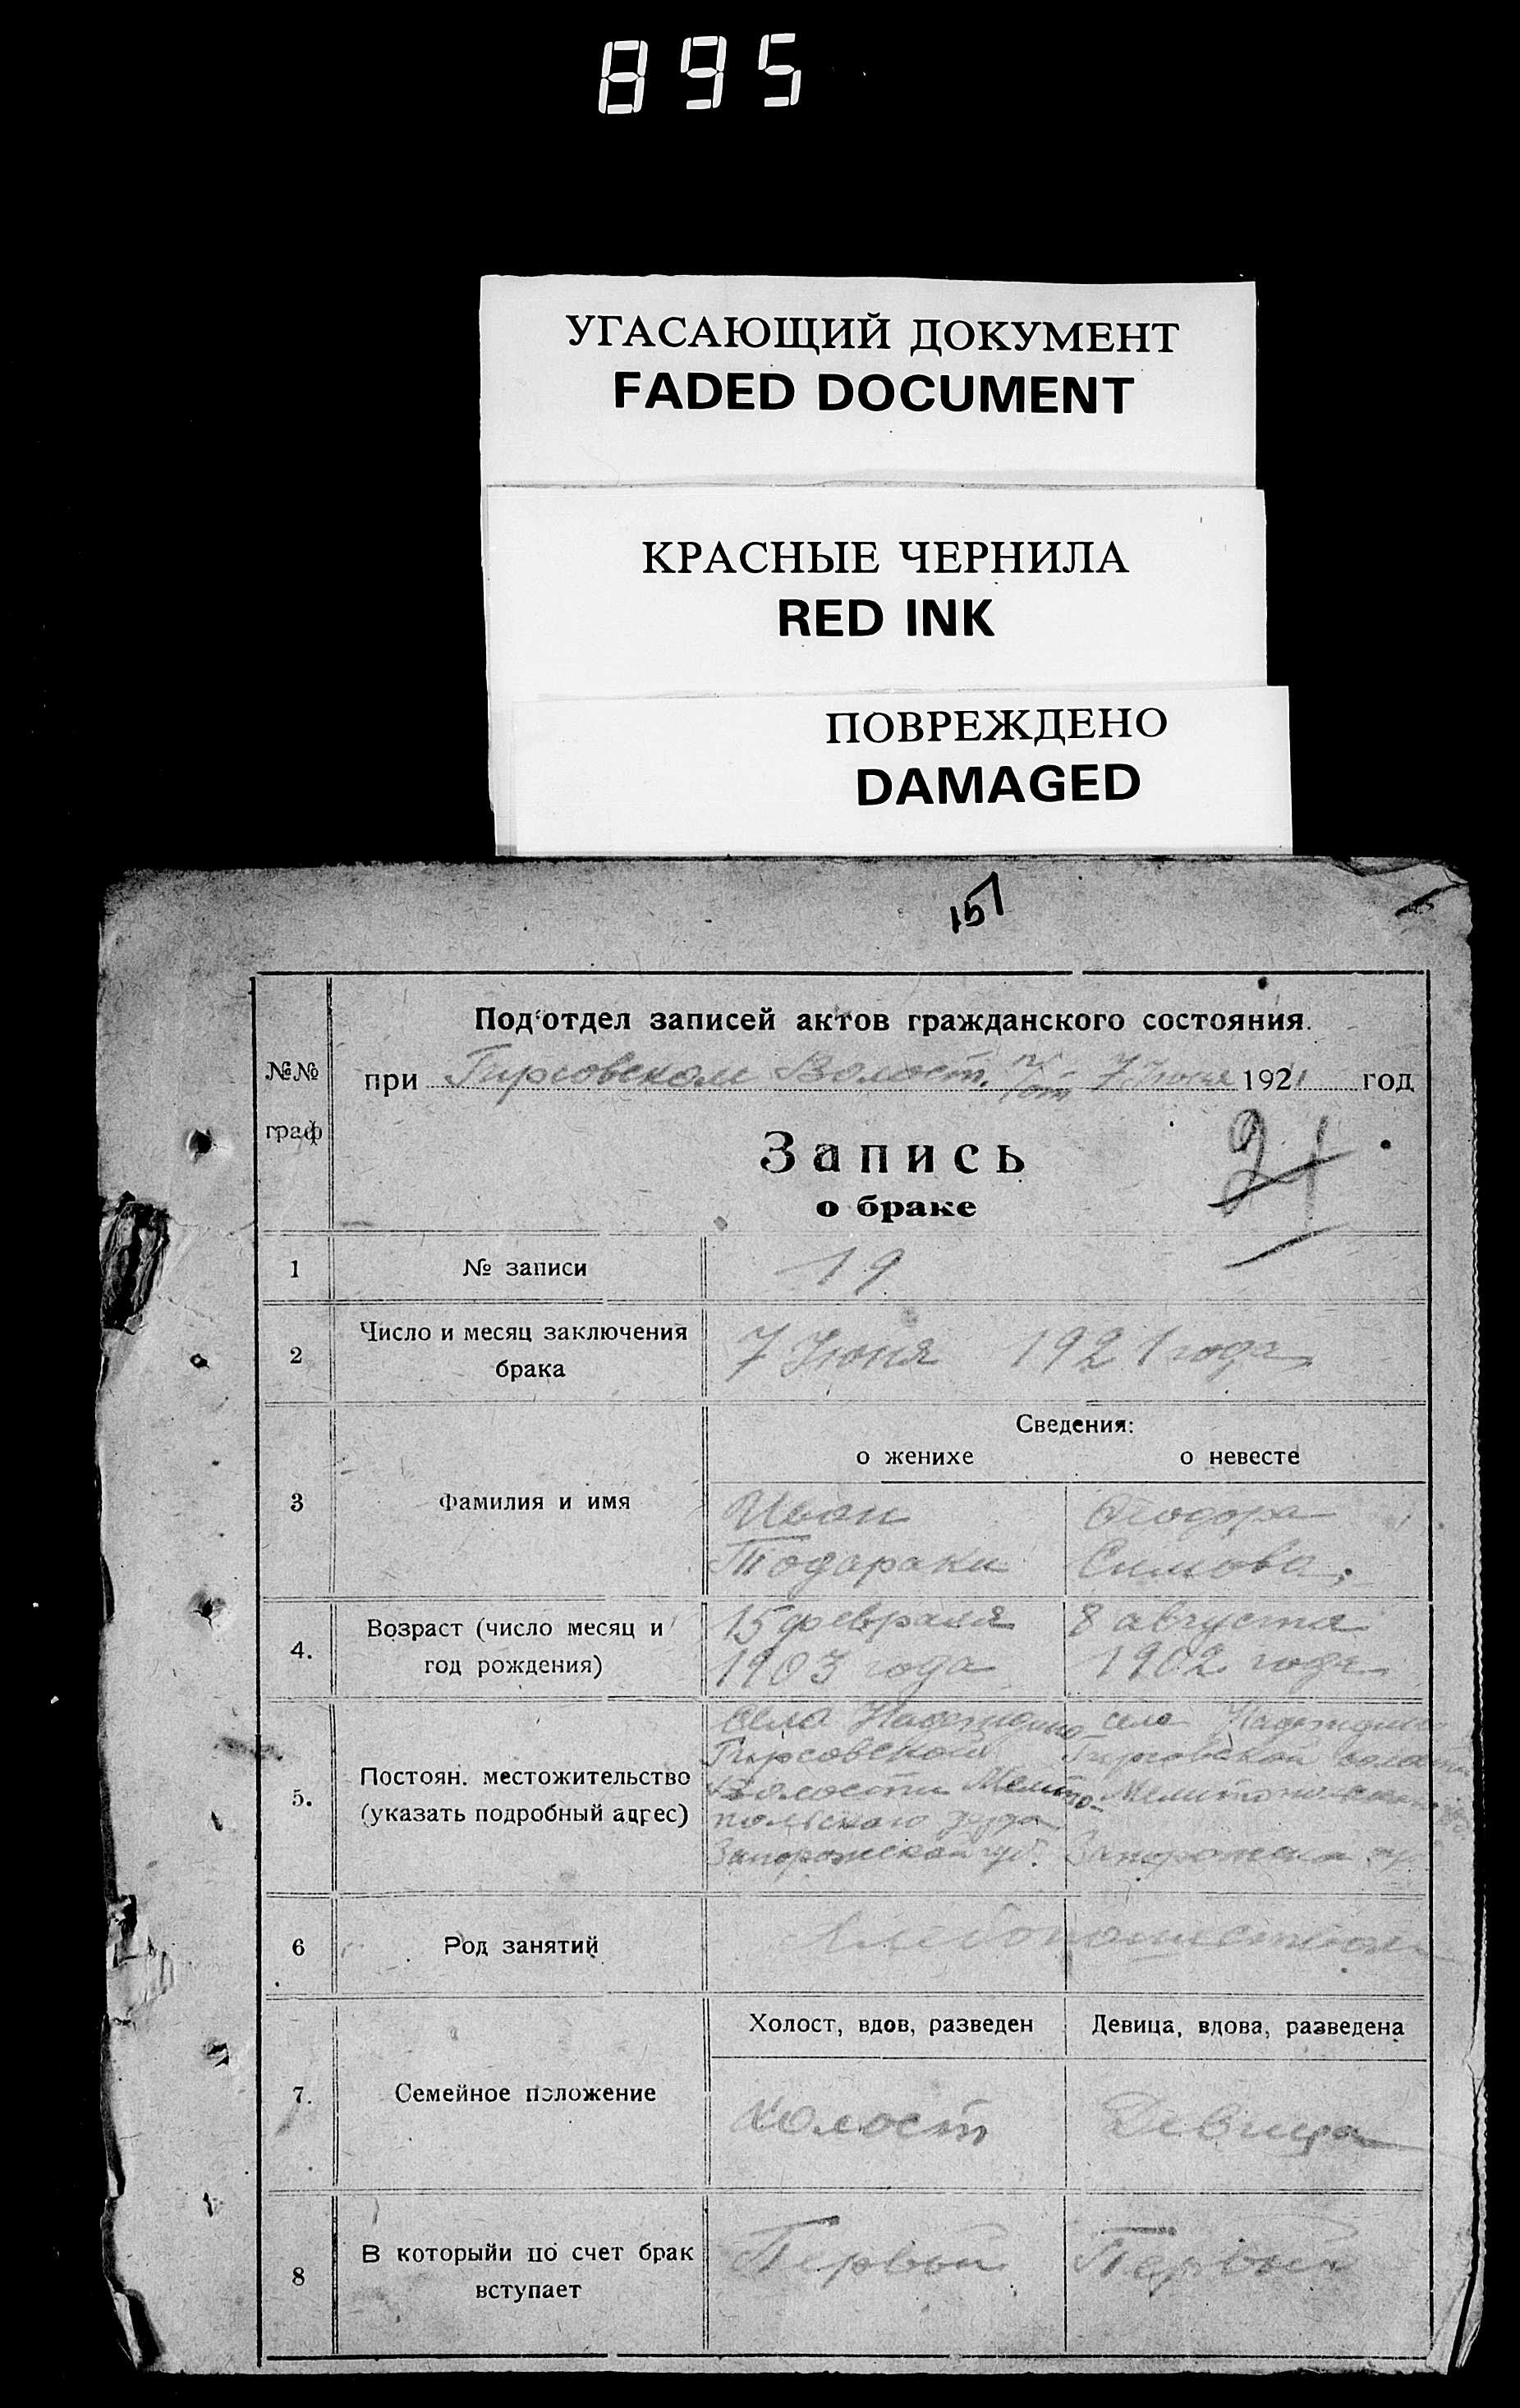 895
УГАСАЮЩИЙ ДОКУМЕНТ
FADED DOCUMENT
КРАСНЫЕ ЧЕРНИЛА
RED INK
ПОВРЕЖДЕНО
DAMAGED
157
№№ граф
Под'отдел записей актов гражданского состояния.
при Гирсовском Волост. 7 Июня 1921 год
Запись
21
о браке
1 № записи 19
2 Число и месяц заключения брака 7 Июня 1921 года
Сведения:
о женихе о невесте
3 Фамилия и имя
Иван Феодора
Тодараки Симова.
4. Возраст (число месяц и год рождения)
15 февраля 8 августа
1903 года 1902 года
5. Постоян. местожительство (указать подробный адрес)
Села Надеждино села Надеждино
Гирсовской Гирсовской волости
Волости Мелито- Мелитопольского
польского уезда
Запорожской губ. Запорожской гу
6 Род занятий
7. Семейное положение
Холост, вдов, разведен Девица, вдова, разведена
Холост Девица
8 В которыйи по счет брак вступает
Первый Первый